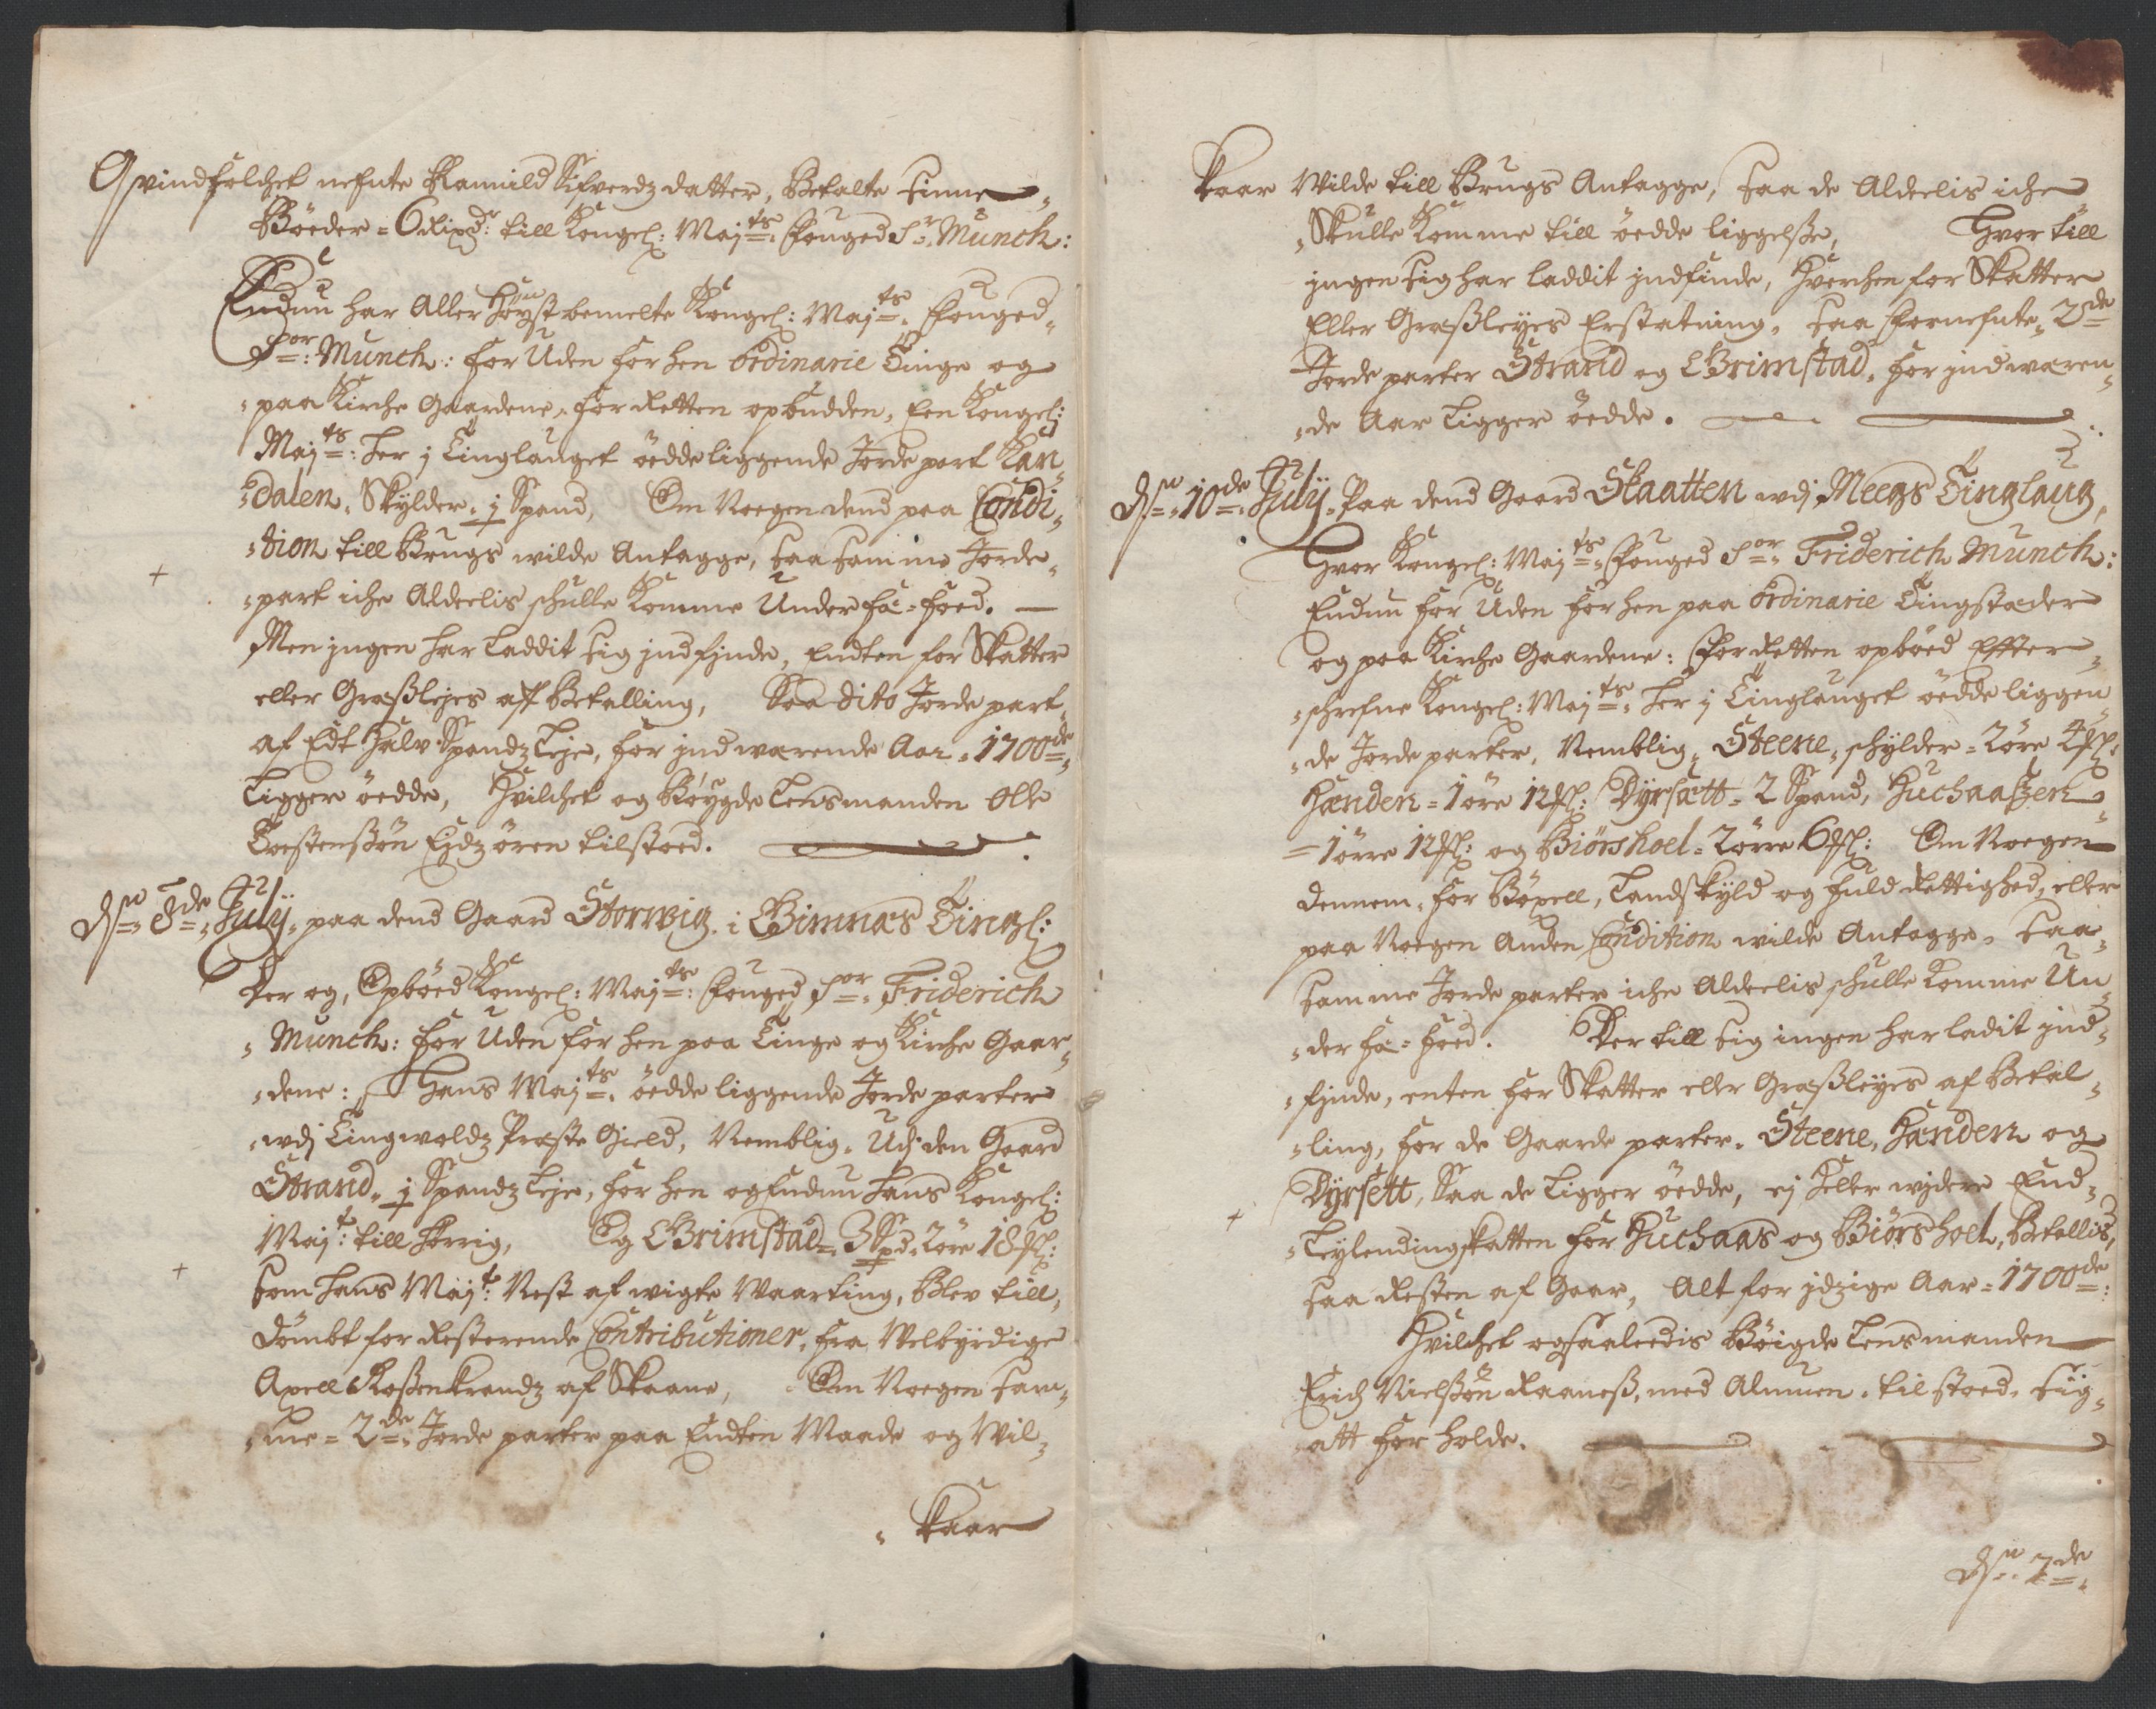 Qvindfolchet nefnte Ramild Sifverdz datter, Betalte sinne
Bøeder = 6 Rixd: till Kongel: Maj:ts Fouged Sr Munch:
Endnu har Aller Høyst bemelte Kongel: Maj:ts Fouged
Sor: Munch: for Uden for hen Ordinarie Tinge og
paa Kirche Gaardene, for Retten opbudden, Een Kongel:
Maj:ts: her j Tinglauget øedde liggende Jorde part Kan
dalen, Skylder j Spand, Om Noegen dend paa Condi
tion till Brugs wilde Antagge, saa samme Jorde
part iche Aldeelis schulle Komme Under fæ-foed. —
Men jngen har Laddit sig jndfjnde, Endten for Skatter
eller Græsslejes aff Betalling, Saa dito Jorde part
af Edt Halv Spandz Leje, for jndwærende Aar 1700de
Ligger øedde, Hvilchet og Bøygde Lensmanden Olle
Torstenssøn Eydzøren tilstoed.
Dn 8de July paa dend Gaard Storwig i Gimnæs Tingl:
Der og, Opbøed Kongel: Maj:ts: Fouged Sor Friderich
Munch: for Uden for hen paa Tinge og Kirche Gaar
dene: Hans Maj:ts øedde liggende Jorde parter
wdj Tingwoldz Præste Gield, Nemblig, Udj den Gaard
Strand, j Spandz Leje, for hen og Endnu hans Kongel:
Maj:t till hørrig, Og Grimstad 3 Spd 2 øre 18 ML:
som hans Maj:t Nest afwigte Waarting, Blev till
dømbt for Resterende Contributioner, fra Welbyrdige
Axell Rossenkrandz af Skaane, Om Noegen sam
me 2de Jorde parter paa Endten Maade og Wil
kaar
kaar Wilde till Brugs Antagge, saa de Aldeelis iche
Skulle Komme till øedde liggelsse, Hvor till
jngen sig har laddit jndfinde, Hverchen for Skatter
Eller Græssleyes Erstatning, saa fornefnte 2de
Jorde parter Strand og Grimstad, for jndwæren
de Aar Ligger øedde.
Dn 10de July Paa dend Gaard Skaatten wdj Meegs Tinglaug,
Hvor Kongel: Maj:ts Fouged Sor Friderich Munch:
Endnu for Uden for hen paa Ordinarie Tingstæder
og paa Kirche Gaardene: for Retten opbøed Effter
schrefne Kongel: Maj:ts her j Tinglauget øedde liggen
de Jorde parter, Nemblig, Steene, schylder 2 øre 4 ML:
Handen 1 øre 12 ML: Dyrsætt 2 Spand, Huchaassen
1 ørre 12 ML: og Biørshoel 2 ørre 6 ML: Om Noegen
dennem, for Bøxell, Landskyld og fuld Rettighed, eller
paa Noegen Anden Condition wilde Antagge, saa
samme Jorde parter iche Aldeelis schulle komme Un
der fæ-foed. Der till sig ingen har ladit jnd
fjnde, enten for Skatter eller Græssleyes af Betal
ling, for de Gaarde parter, Steene, Handen og
Dyrsett, Saa de Ligger øedde, ej heller wjdere End
Leylendingskatten for Huchaas og Biørshoel, Betallis,
saa Resten af Gaar, Alt for jdzige Aar 1700de:
Hvilchet ogsaaleedis Bøigde Lensmanden
Erich Nielssøn Raaness, med Almuen, tilstoed, sig
att forholde.
Dn 7de